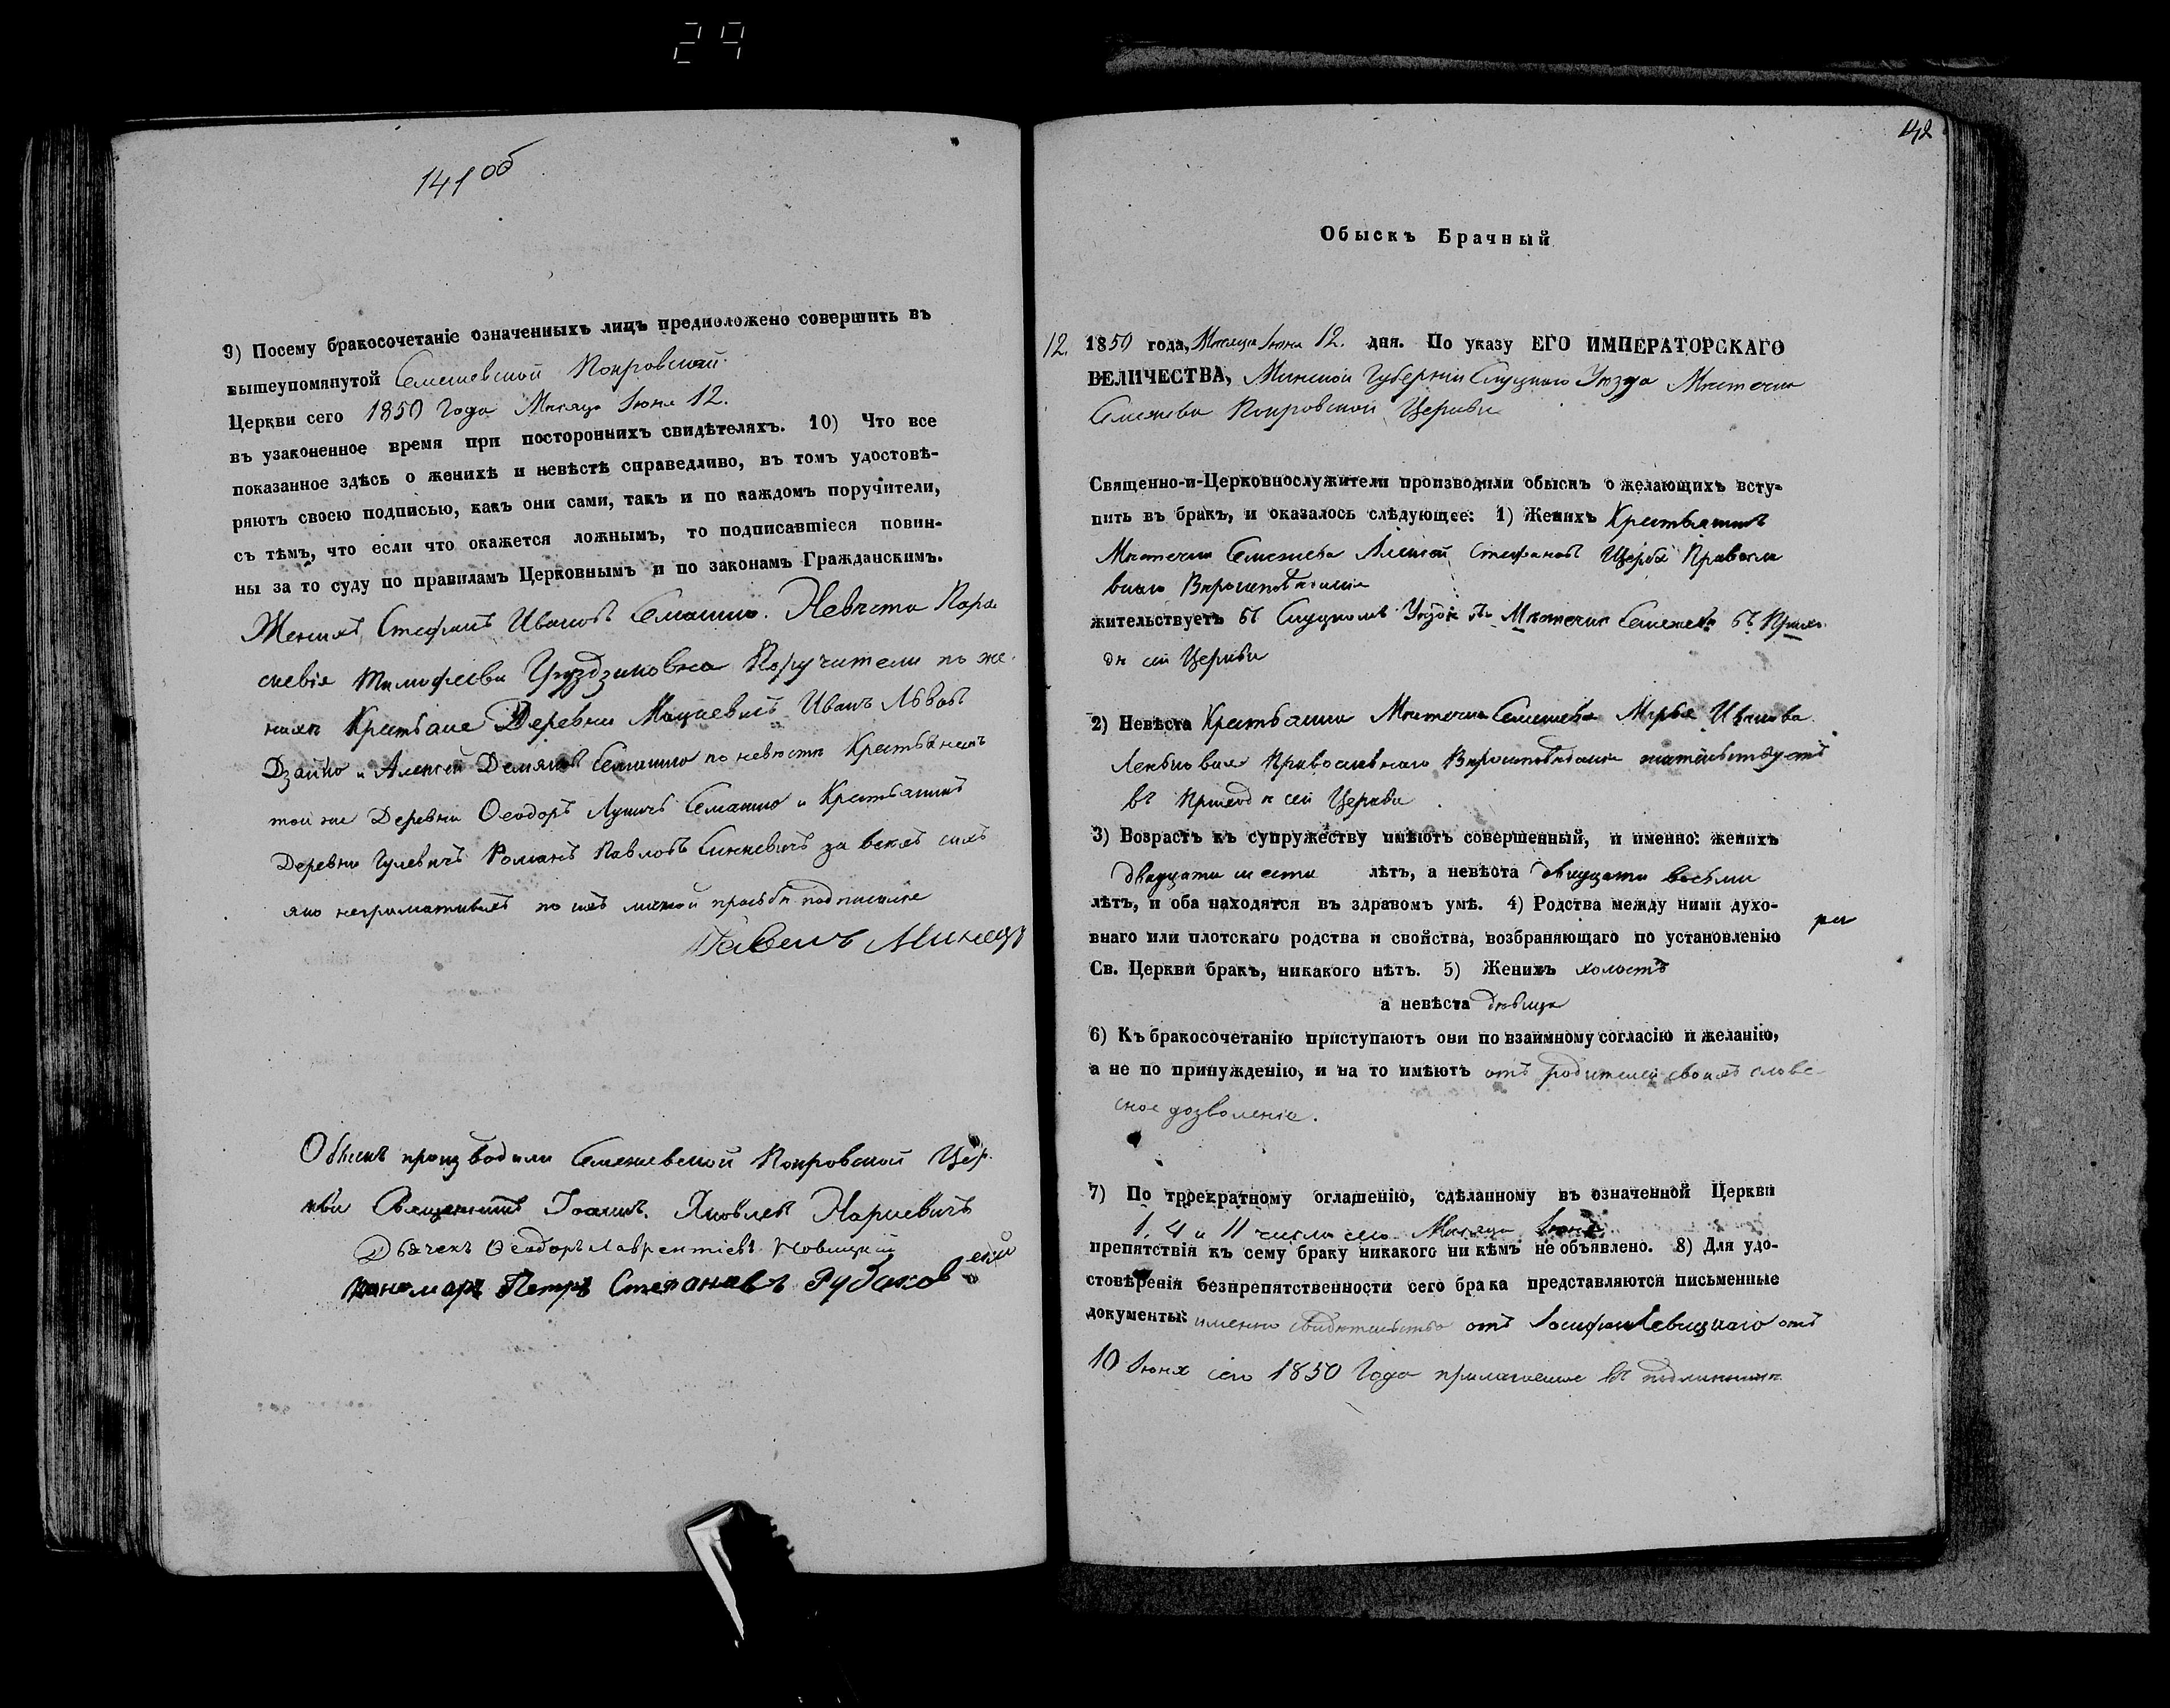 29
141 об
9) Посему бракосочетаніе означенныхъ лицъ предположено совершить въ
вышеупомянутой Семежевской Покровской
Церкви сего 1850 Года Месяца Іюня 12.
въ узаконенное время при постороннихъ свидѣтеляхъ. 10) Что все
показанное здѣсь о женихѣ и невѣстѣ справедливо, въ томъ удостовѣ-
ряютъ своею подписью, какъ они сами, такъ и по каждомъ поручители,
съ тѣмъ, что если что окажется ложнымъ, то подписавшіеся повин-
ны за то суду по правиламъ Церковнымъ и по законамъ Гражданскимъ.
Женихъ, Стефанъ Ивановъ Семашко. Невѣста Пара
скевія Тимофеева Поручители по же
нихѣ Крестьяне Деревни Иванъ Львовъ
Дзайко и Алексей Демяновъ Семашко по невѣстѣ Крестьянинъ
той же Деревни Ѳеодоръ Лукинъ Семашко и Крестьянинъ
Деревни Гулевичъ Романъ Павловъ Синкевичъ за всехъ сихъ
яко неграмотныхъ по ихъ личной просьбѣ подписался
Павелъ
Обыскъ производили Семежевской Покровской Цер
кви Священникъ Іоаннъ Яковлевъ Наркевичъ
Дьячекъ Ѳеодоръ Лаврентіевъ Новицкій
Пономарь Петръ Степановъ Рубаковскій
142
Обыскъ Брачный
12. 1850 года, Месяца Іюня 12. дня. По указу ЕГО ИМПЕРАТОРСКАГО
ВЕЛИЧЕСТВА, Минской Губерніи Слуцкаго Уѣзда Мѣстечка
Семежева Покровской Церкви
Священно-и-Церковнослужители производили обыскъ о желающихъ всту-
пить въ бракъ, и оказалось слѣдующее: 1) Женихъ Крестьянинъ
Мѣстечка Семежева Алексей Стефановъ Щерба Правосла
внаго Вѣроисповѣданія
жительствуетъ въ Слуцкомъ Уѣздѣ въ Мѣстечкѣ Семежевѣ въ Прихо
дѣ сей Церкви
2) Невѣста Крестьянка Мѣстечка Семежева Марья Иванова
Православнаго Вѣроисповѣданія жительствуетъ
въ Приходѣ сей Церкви
3) Возрастъ къ супружеству имѣютъ совершенный, и именно: женихъ
двадцати шести лѣтъ, а невѣста двадцати восьми
лѣтъ, и оба находятся въ здравомъ умѣ. 4) Родства между ними духо-
внаго или плотскаго родства и свойства, возбраняющаго по установленію
Св. Церкви бракъ, никакого нѣтъ. 5) Женихъ холостъ
а невѣста дѣвица
6) Къ бракосочетанію приступаютъ они по взаимному согласію и желанію,
а не по принужденію, и на то имѣютъ отъ родителей своихъ слове
сное дозволеніе.
7) По троекратному оглашенію, сдѣланному въ означенной Церкви
1, 4 и 11 числа сего Месяца Іюня
препятствія къ сему браку никакого ни кѣмъ не объявлено. 8) Для удо-
стовѣренія безпрепятственности сего брака представляются письменные
документы: именно свидѣтельство отъ Іосифа Левицкаго отъ
10 Іюня сего 1850 Года прилагаемое въ подлинникѣ